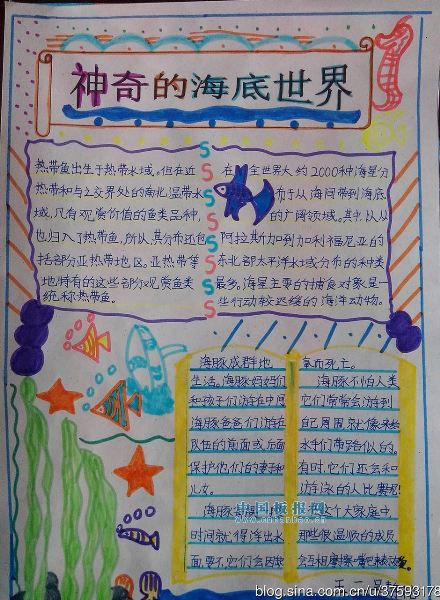 神奇的海底世界
热带鱼出生于热带水域。但在近
热带和与之交界处的南北温带水
域,凡有观赏价值的鱼类品种,
也归入了热带鱼,所以,其分布还包
括部分亚热带地区。亚热带等
地特有的这些部分观赏鱼类
统称热带鱼。
在全世界大约2000种海星分
布于从海间带到海底
的广阔领域。其中以从
阿拉斯加到加利福尼亚的
东北部太平洋水域分布的种类
最多。海星主要的捕食对象是一
些行动较迟缓的海洋动物。
海豚成群地
生活。海豚妈妈们
和孩子们游在中间
海豚爸爸们游在
队伍的前面或后面
保护他们的妻子和
儿女。
海豚
时间就得浮出水
面,要不,它们会因
氧而死亡。
海豚不怕人类
它们常常会游到
自己周围,就像来给
水手们带路似的。
有时,它们还会和
游泳的人比赛呢!
这个大家庭中
那些很温顺的成员
会互相摩擦
中国板报网
blog.sina.com.cn/u/37593178